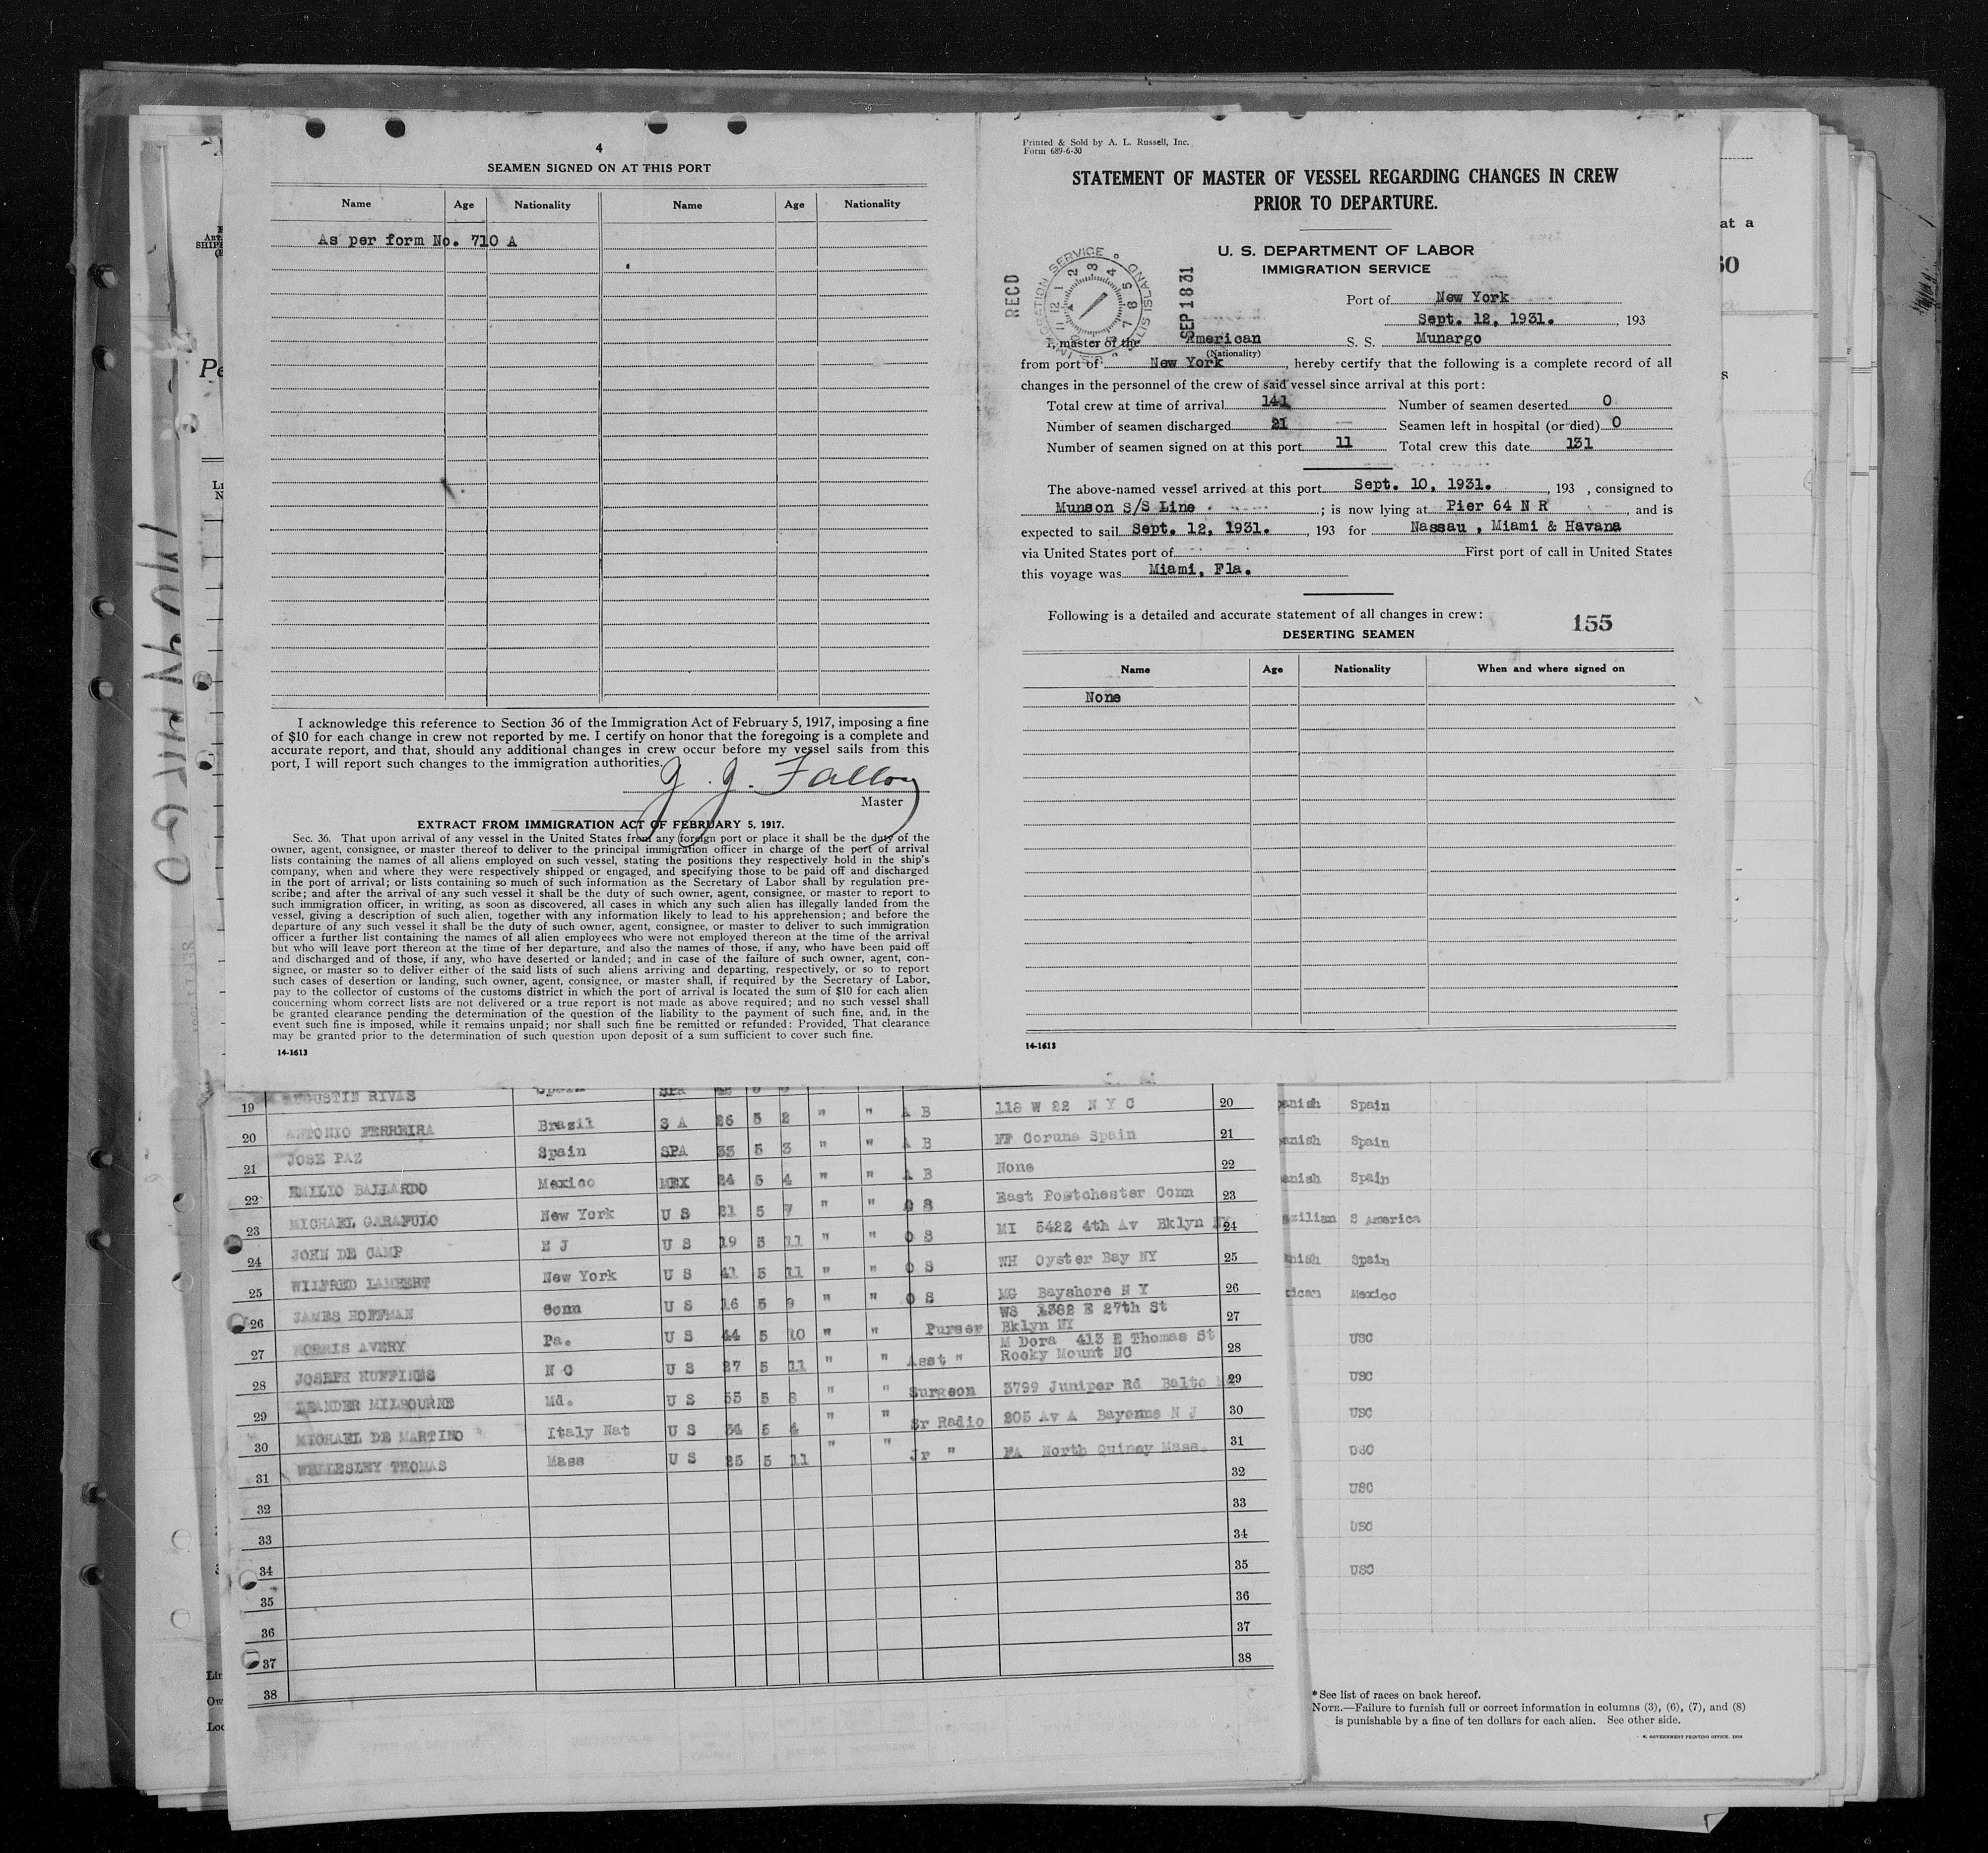 4
SEAMEN SIGNED ON AT THIS PORT
Name Age Nationality Name Age Nationality
As per form No. 710 A
I acknowledge this reference to Section 36 of the Immigration Act of February 5, 1917, imposing a fine
of $10 for each change in crew not reported by me. I certify on honor that the foregoing is a complete and
accurate report, and that, should any additional changes in crew occur before my vessel sails from this
port, I will report such changes to the immigration authorities.
J. J. Fallon
Master
EXTRACT FROM IMMIGRATION ACT OF FEBRUARY 5, 1917.
Sec. 36. That upon arrival of any vessel in the United States from any foreign port or place it shall be the duty of the
owner, agent, consignee, or master thereof to deliver to the principal immigration officer in charge of the port of arrival
lists containing the names of all aliens employed on such vessel, stating the positions they respectively hold in the ship's
company, when and where they were respectively shipped or engaged, and specifying those to be paid off and discharged
in the port of arrival; or lists containing so much of such information as the Secretary of Labor shall by regulation pre-
scribe; and after the arrival of any such vessel it shall be the duty of such owner, agent, consignee, or master to report to
such immigration officer, in writing, as soon as discovered, all cases in which any such alien has illegally landed from the
vessel, giving a description of such alien, together with any information likely to lead to his apprehension; and before the
departure of any such vessel it shall be the duty of such owner, agent, consignee, or master to deliver to such immigration
officer a further list containing the names of all alien employees who were not employed thereon at the time of the arrival
but who will leave port thereon at the time of her departure, and also the names of those, if any, who have been paid off
and discharged and of those, if any, who have deserted or landed; and in case of the failure of such owner, agent, con-
signee, or master so to deliver either of the said lists of such aliens arriving and departing, respectively, or so to report
such cases of desertion or landing, such owner, agent, consignee, or master shall, if required by the Secretary of Labor,
pay to the collector of customs of the customs district in which the port of arrival is located the sum of $10 for each alien
concerning whom correct lists are not delivered or a true report is not made as above required; and no such vessel shall
be granted clearance pending the determination of the question of the liability to the payment of such fine, and, in the
event such fine is imposed, while it remains unpaid; nor shall such fine be remitted or refunded: Provided, That clearance
may be granted prior to the determination of such question upon deposit of a sum sufficient to cover such fine.
14-1613
Printed & Sold by A. L. Russell, Inc.
Form 689-6-30
STATEMENT OF MASTER OF VESSEL REGARDING CHANGES IN CREW
PRIOR TO DEPARTURE.
U. S. DEPARTMENT OF LABOR
IMMIGRATION SERVICE
RECD
SEP 18 31
Port of New York
Sept. 12, 1931. , 193
I, master of the American S. S. Munargo
(Nationality)
from port of New York , hereby certify that the following is a complete record of all
changes in the personnel of the crew of said vessel since arrival at this port:
Total crew at time of arrival 141 Number of seamen deserted 0
Number of seamen discharged 21 Seamen left in hospital (or died) 0
Number of seamen signed on at this port 11 Total crew this date 131
The above-named vessel arrived at this port Sept. 10, 1931. , 193 , consigned to
Munson S/S Line ; is now lying at Pier 64 N R , and is
expected to sail Sept. 12, 1931. , 193 for Nassau , Miami & Havana
via United States port of First port of call in United States
this voyage was Miami, Fla.
Following is a detailed and accurate statement of all changes in crew:
155
DESERTING SEAMEN
Name Age Nationality When and where signed on
None
14-1613
MUNARGO
19 AUGUSTIN RIVAS Spain SPA
20 ANTONIO FERREIRA Brazil S A 26 5 2 " " A B 118 W 22 N Y C 20
21 JOSE PAZ Spain SPA 35 5 3 " " A B FF Coruna Spain 21
22 EMILIO BALLARDO Mexico MEX 24 5 4 " " A B None 22
23 MICHAEL GARAFULO New York U S 21 5 7 " " O S East Postchester Conn 23
24 JOHN DE CAMP N J U S 19 5 11 " " O S MI 5422 4th Av Bklyn NY 24
25 WILFRED LAMBERT New York U S 41 5 11 " " O S WH Oyster Bay NY 25
26 JAMES HOFFMAN Conn U S 16 5 9 " " O S MG Bayshore N Y 26
27 MORRIS AVERY Pa. U S 44 5 10 " " Purser WS 1382 E 27th St Bklyn NY 27
28 JOSEPH HUFFINES N C U S 27 5 11 " " Asst " M Dora 413 E Thomas St Rocky Mount NC 28
29 LEANDER MILBOURNE Md. U S 55 5 8 " " Surgeon 3799 Juniper Rd Balto 29
30 MICHAEL DE MARTINO Italy Nat U S 34 5 4 " " Sr Radio 205 Av A Bayonne N J 30
31 WELLESLEY THOMAS Mass U S 25 5 11 " " Jr " FA North Quincy Mass. 31
32 32
33 33
34 34
35 35
36 36
37 37
38 38
Spain
Spain
Spain
S America
Spain
Mexico
USC
USC
USC
USC
USC
USC
USC
* See list of races on back hereof.
NOTE.—Failure to furnish full or correct information in columns (3), (6), (7), and (8)
is punishable by a fine of ten dollars for each alien. See other side.